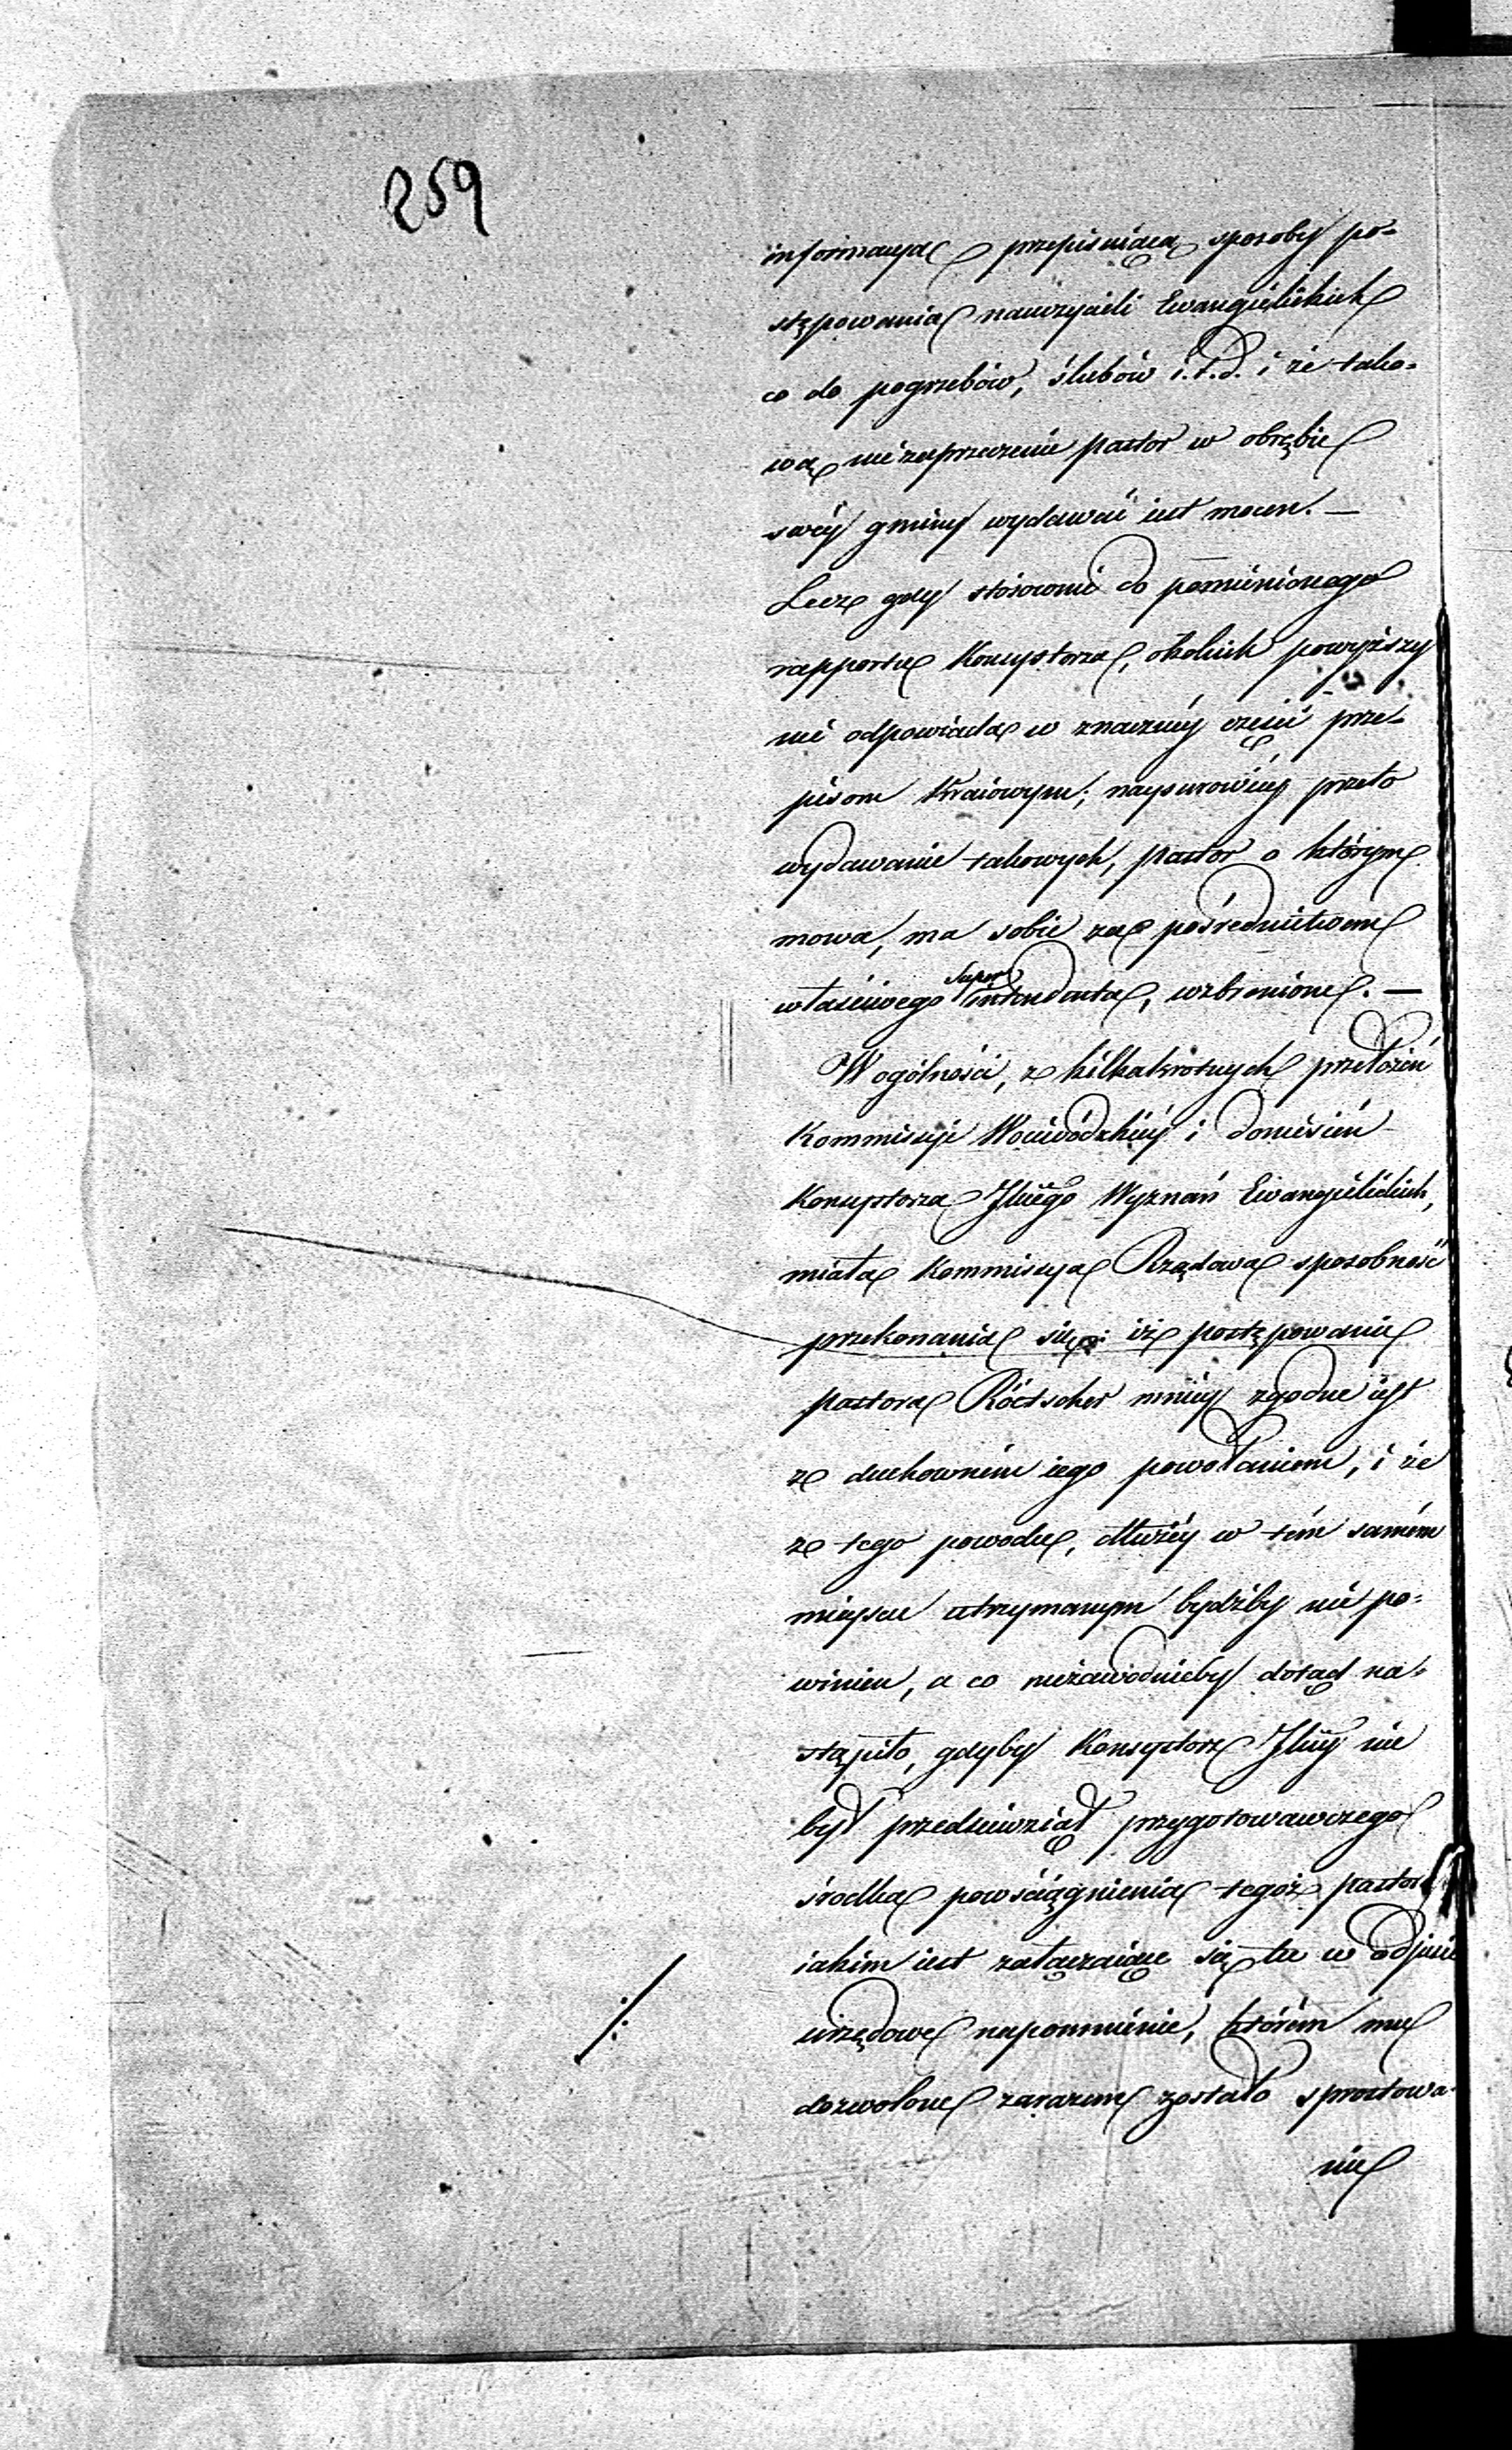 259
informacya przepisuiącą sposoby po-
stępowania nauczycieli Ewangielickich
co do pogrzebów, ślubów i.t.d. i że tako-
wą niezaprzeczenie pastor w obrębie
swéy gminy wydawać iest mocen. —
Lecz gdy stósownie do pomienionego
rapportu Konsystorza, okolnik powyższy
nie odpowiada w znacznéy części prze-
pisom kraiowym; naysurowiéy przeto
wydawanie takowych, pastor o którym
mowa, ma sobie za pośrednictwem
właściwego Superintendenta, wzbronione. —
W ogólności, z kilkakrotnych przełożeń
Kommissyi Woiewódzkiéy i doniesień
Konsystorza Jlnego Wyznań Ewangielickich,
miała Kommissya Rządowa sposobność
przekonania się: iż postępowanie
pastora Röetscher mniéy zgodne iest
z duchowném iego powołaniem, i że
z tego powodu, dłużéy w tém samém
mieyscu utrzymanym bydźby nie po-
winien, a co niezawodnieby dotąd na-
stąpiło, gdyby Konsystorz Jlny nie
był przedsięwziął przygotowawczego
środka powściągnienia tegoż pastora
iakim iest załączaiące się tu w odpisie
urzędowe napomnienie, którém mu
dozwolone zarazem zostało sprostowa-
nie